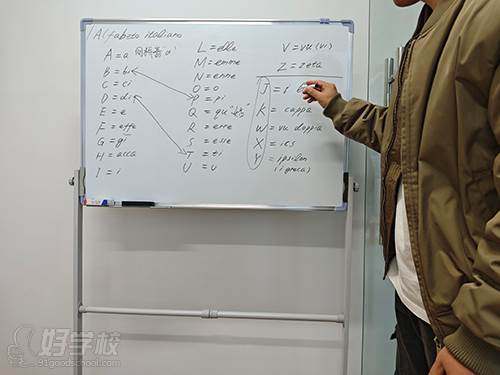 Alfabeto italiano
A = a
B = bi
C = ci
D = di
E = e
F = effe
G = gi
H = acca
I = i
L = elle
M = emme
N = enne
O = o
P = pi
Q = qu
R = erre
S = esse
T = ti
U = u
V = vu (vi)
Z = zeta
J = i
K = cappa
W = vu doppia
X = ics
Y = ipsilon
(i greca)
好学校
91goodschool.com